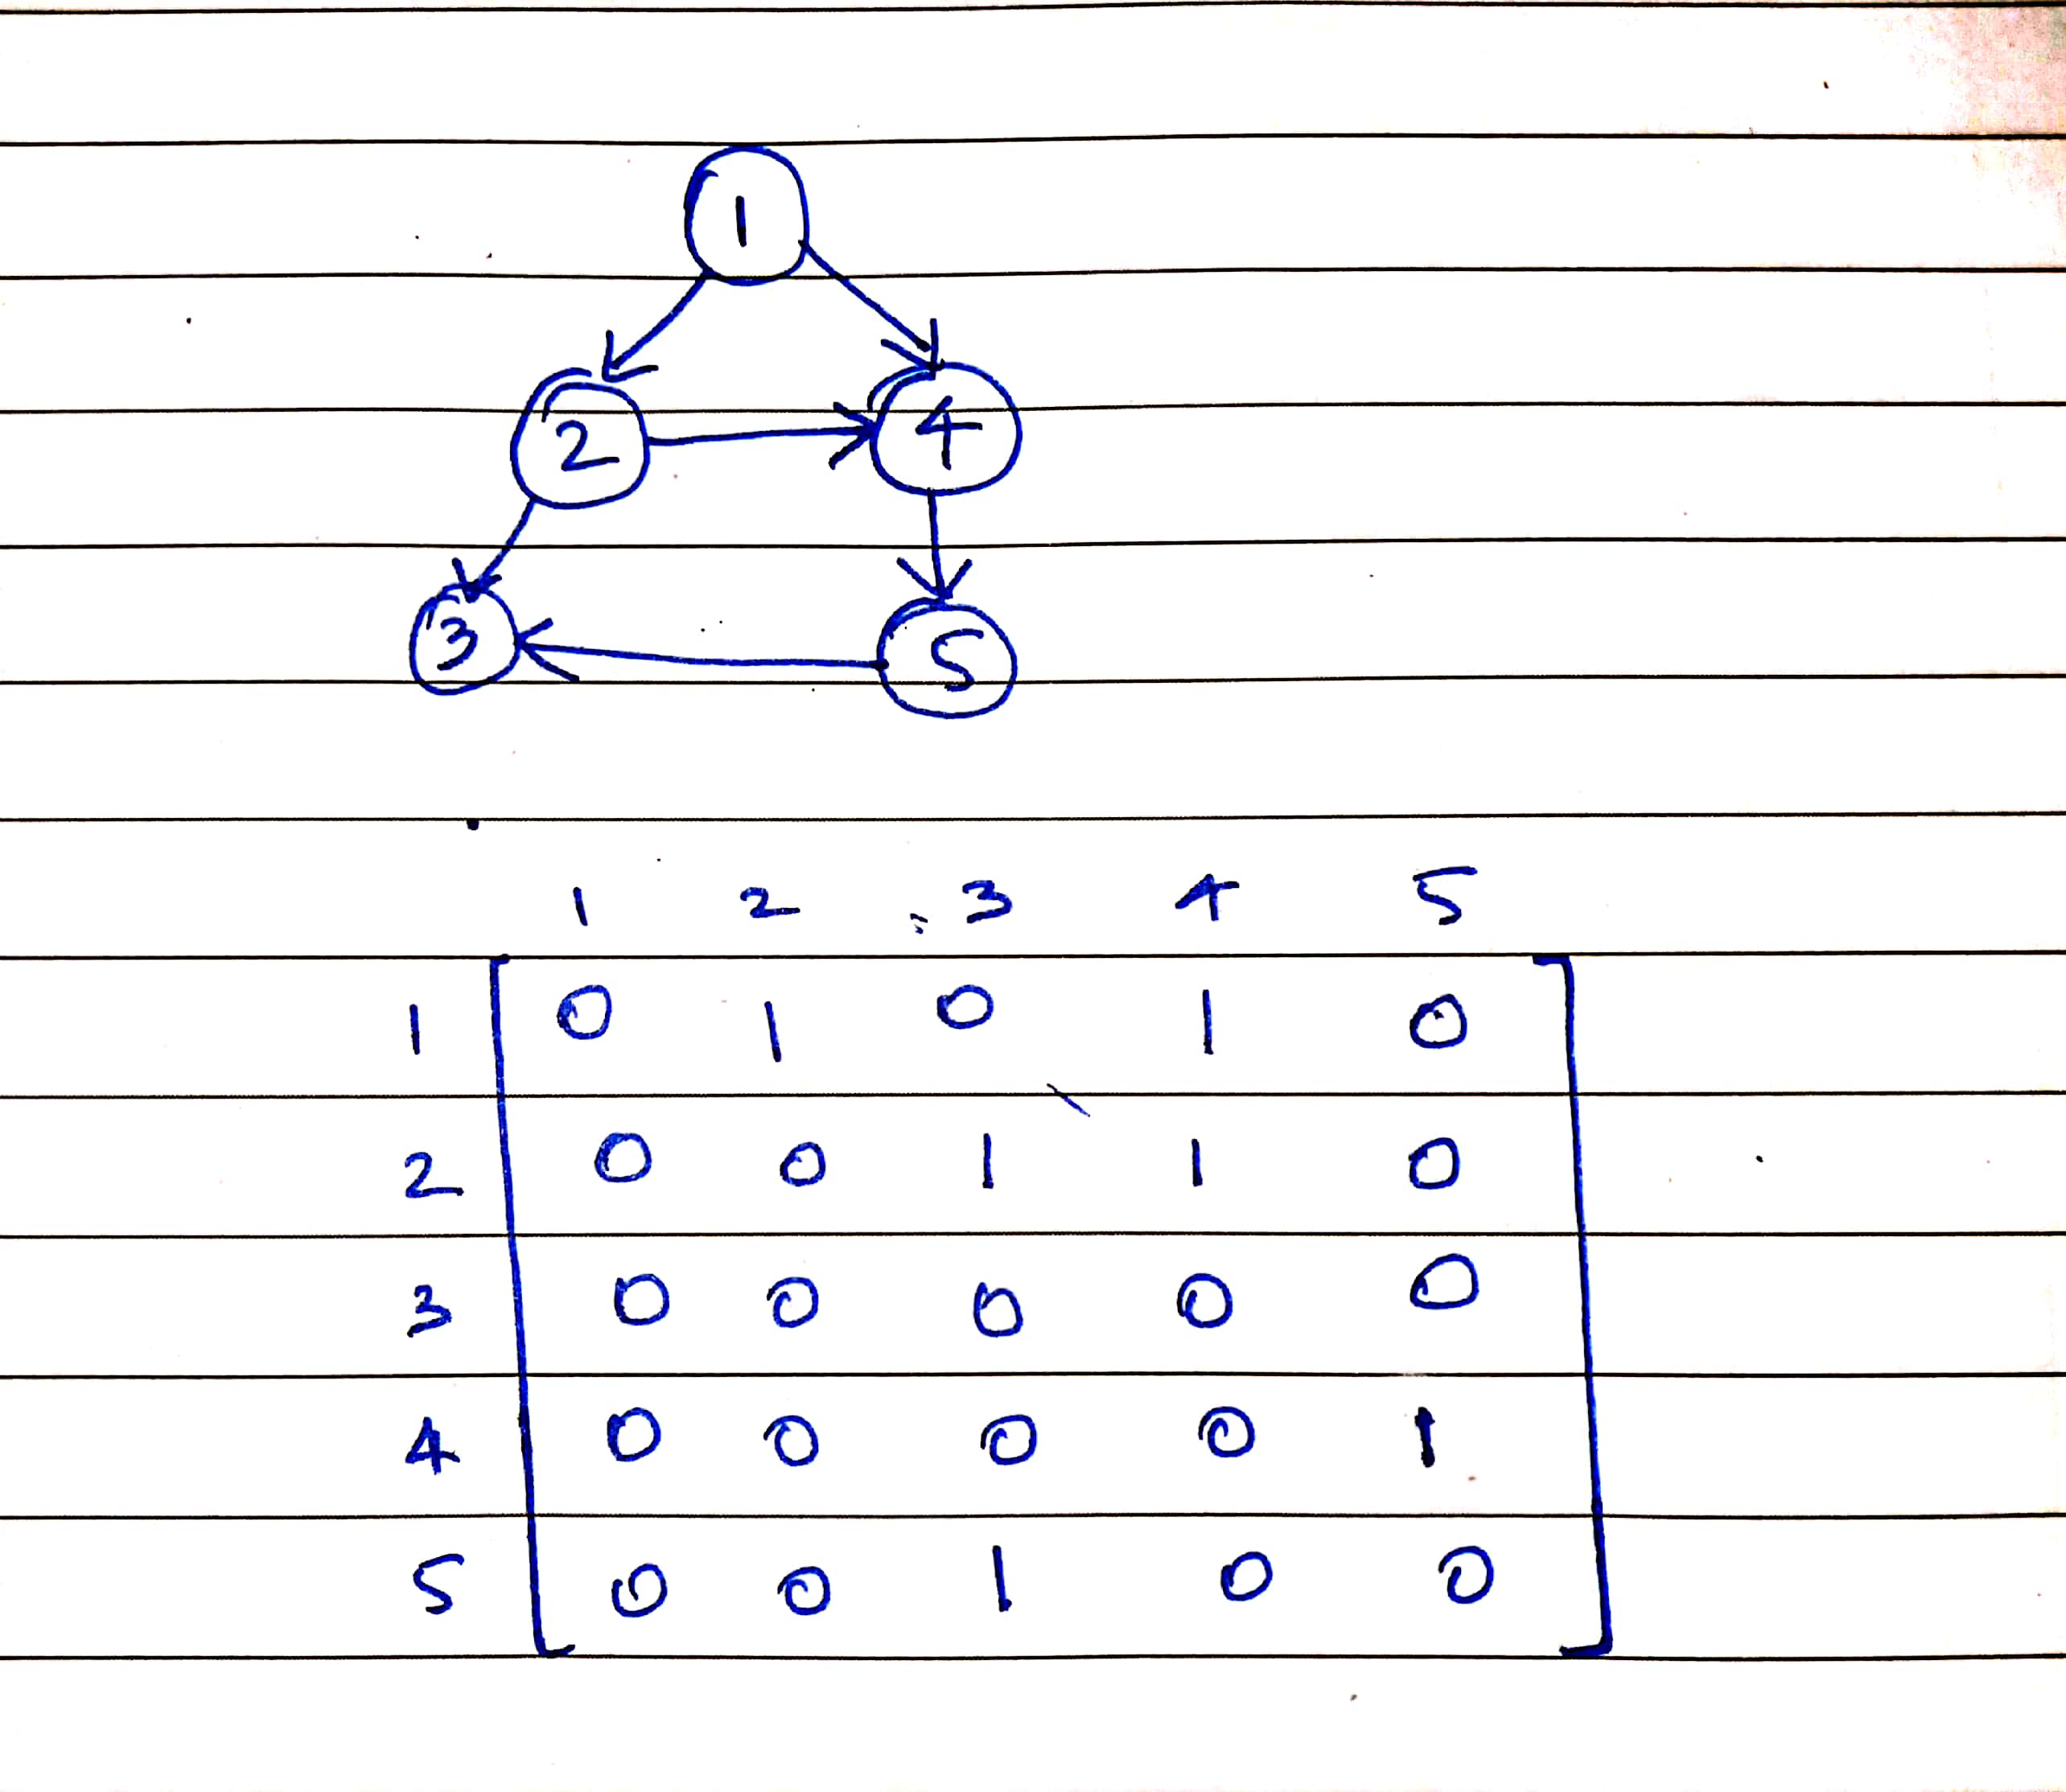 1
2 4
3 5
1 2 3 4 5
1 0 1 0 1 0
2 0 0 1 1 0
3 0 0 0 0 0
4 0 0 0 0 1
5 0 0 1 0 0